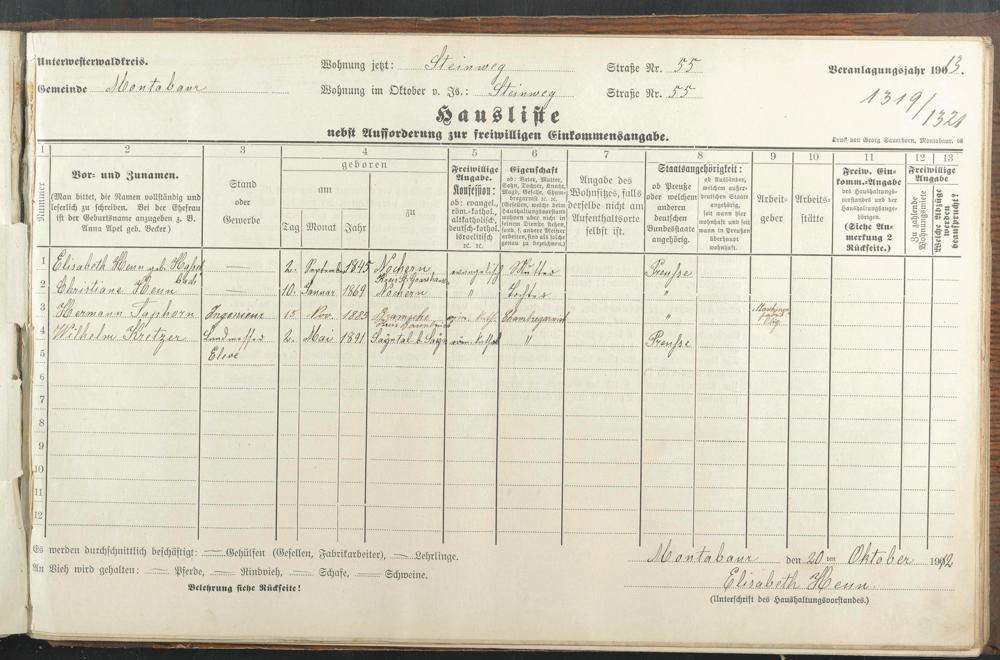 Unterwesterwaldkreis. Wohnung jetzt: Steinweg Straße Nr. 55 Veranlagungsjahr 1913.
Gemeinde Montabaur Wohnung im Oktober v. Js.: Steinweg Straße Nr. 55
1319/1321
Hausliste
nebst Aufforderung zur freiwilligen Einkommensangabe.
Druck von Georg Sauerborn, Montabaur.
1 2 3 4 5 6 7 8 9 10 11 12 13
Nummer
Vor- und Zunamen.
(Man bittet, die Namen vollständig und
leserlich zu schreiben. Bei der Ehefrau
ist der Geburtsname anzugeben z. B.
Anna Apel geb. Becker)
Stand
oder
Gewerbe
geboren
am
zu
Tag Monat Jahr
Freiwillige
Angabe.
Konfession:
ob: evangel.,
röm.-kathol.,
altkatholisch,
deutsch-kathol.
israelitisch
ec. ec.
Eigenschaft
ob: Vater, Mutter,
Sohn, Tochter, Knecht,
Magd, Geselle, Cham-
bregarnist ec. ec.
Gesellen, welche beim
Haushaltungsvorstand
wohnen oder nicht in
seinem Dienste stehen,
sind als solche
genau zu bezeichnen.)
Angabe des
Wohnsitzes, falls
derselbe nicht am
Aufenthaltsorte
selbst ist.
Staatsangehörigkeit:
ob Preuße
oder welchem
anderen
deutschen
Bundesstaate
angehörig.
ob Ausländer,
welchem außer-
deutschen Staate
angehörig,
seit wann hier
wohnhaft und
seit wann
in Preußen
überhaupt
wohnhaft.
Arbeit-
geber
Arbeits-
stätte
Freiw. Ein-
komm.-Angabe
des Haushaltungs-
vorstandes und der
Haushaltungsange-
hörigen.
(Siehe An-
merkung 2
Rückseite.)
Freiwillige
Angabe
Zu zahlende
Wohnungsmiete
Welche Abzüge
werden
beansprucht?
1 Elisabeth Henn geb. 2. September 1845 Nochern evangelisch Mutter Preuße
2 Christiane Henn 10. Januar 1869 Nochern " Tochter "
3 Hermann Taphorn Ingenieur 15 Nov. 1885 Bramsche röm. kath. Chambregarnist "
4 Wilhelm Kretzer Landmesser 2. Mai 1891 Sayntal b. Sayn röm. kathol " Preuße
5 Eleve
6
7
8
9
10
11
12
Es werden durchschnittlich beschäftigt: — Gehülfen (Gesellen, Fabrikarbeiter), — Lehrlinge.
An Vieh wird gehalten: — Pferde, — Rindvieh, — Schafe, — Schweine.
Belehrung siehe Rückseite!
Montabaur den 20ten Oktober 1912
Elisabeth Henn.
(Unterschrift des Haushaltungsvorstandes.)